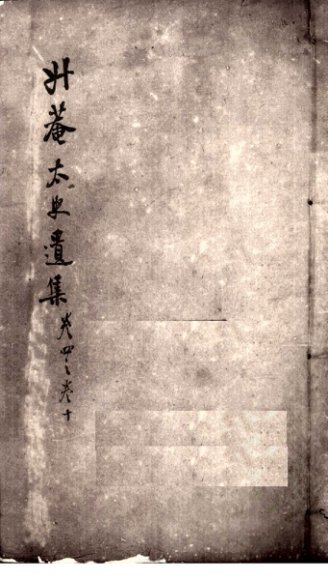 升菴太史遺集卷四之卷十